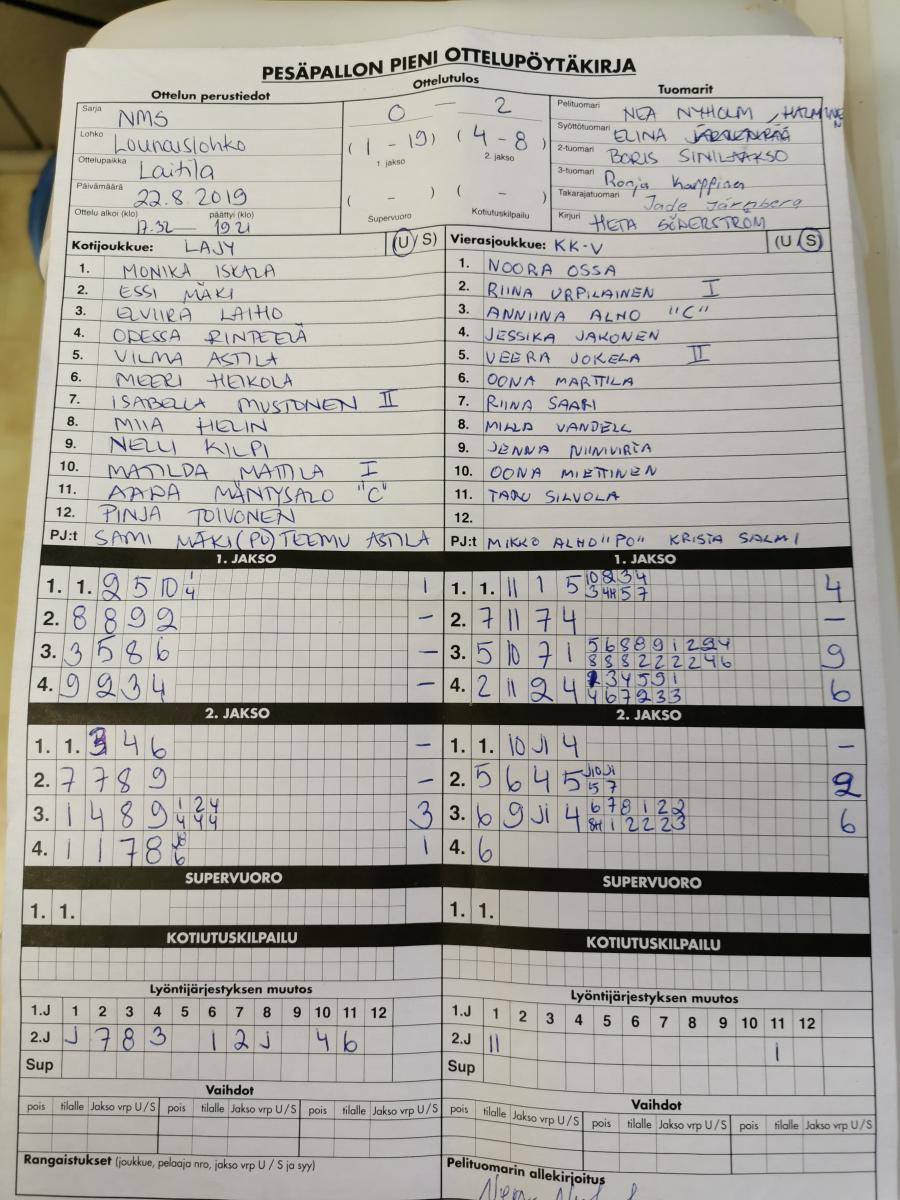 PESÄPALLON PIENI OTTELUPÖYTÄKIRJA
Ottelun perustiedot
Sarja NMS
Lohko Lounaislohko
Ottelupaikka Laitila
Päivämäärä 22.8.2019
Ottelu alkoi (klo) päättyi (klo)
17.32 — 19 21
Ottelutulos
0 — 2
(1 - 19) (4 - 8)
1. jakso 2. jakso
( - ) ( - )
Supervuoro Kotiutuskilpailu
Tuomarit
Pelituomari NEA NYHOLM
Syöttötuomari ELINA
2-tuomari BORIS
3-tuomari Ronja Karppinen
Takarajatuomari Jade Järnberg
Kirjuri HETA SÖDERSTRÖM
Kotijoukkue: LAJY (U/S)
1. MONIKA ISKALA
2. ESSI MÄKI
3. ELVIIRA LAIHO
4. ODESSA
5. VILMA ASTILA
6. MEERI HEIKOLA
7. ISABELLA MUSTONEN II
8. MIIA HELIN
9. NELLI KILPI
10. MATILDA MATTILA I
11. MÄNTYSALO "C"
12. PINJA TOIVONEN
PJ:t SAMI MÄKI (PJ) TEEMU ASTILA
Vierasjoukkue: KK-V (U/S)
1. NOORA OSSA
2. RIINA URPILAINEN I
3. ANNIINA ALHO "C"
4. JESSIKA JAKONEN
5. VEERA JOKELA II
6. OONA MARTTILA
7. RIINA SAARI
8. MILLA VANDELL
9. JENNA NIINIVIRTA
10. OONA MIETTINEN
11. TARU SILVOLA
12.
PJ:t MIKKO ALHO "PJ" KRISTA SALMI
1. JAKSO
1. 1. 2 5 10 1 4 1
2. 8 8 9 2 –
3. 3 5 8 6 –
4. 9 2 3 4 –
2. JAKSO
1. 1. 3 4 6 –
2. 7 7 8 9 –
3. 1 4 8 9 1 2 4 4 4 4 3
4. 1 1 7 8 6 1
SUPERVUORO
1. 1.
KOTIUTUSKILPAILU
1. JAKSO
1. 1. 11 1 5 10 8 3 4 3 4H 5 7 4
2. 7 11 7 4 –
3. 5 10 7 1 5 6 8 8 9 1 2 9 4 8 8 8 2 2 2 2 4 6 9
4. 2 11 2 4 2 3 4 5 9 1 4 6 7 2 3 3 6
2. JAKSO
1. 1. 10 J1 4 –
2. 5 6 4 5 J10 J1 5 7 2
3. 6 9 J1 4 6 7 8 1 2 2 8H 1 2 2 2 3 6
4. 6
SUPERVUORO
1. 1.
KOTIUTUSKILPAILU
Lyöntijärjestyksen muutos
1.J 1 2 3 4 5 6 7 8 9 10 11 12
2.J J 7 8 3 1 2 J 4 6
Sup
Lyöntijärjestyksen muutos
1.J 1 2 3 4 5 6 7 8 9 10 11 12
2.J 11 1
Sup
Vaihdot
pois tilalle Jakso vrp U/S pois tilalle Jakso vrp U/S pois tilalle Jakso vrp U/S
Vaihdot
pois tilalle Jakso vrp U/S pois tilalle Jakso vrp U/S pois tilalle Jakso vrp U/S
Rangaistukset (joukkue, pelaaja nro, jakso vrp U / S ja syy)
Pelituomarin allekirjoitus